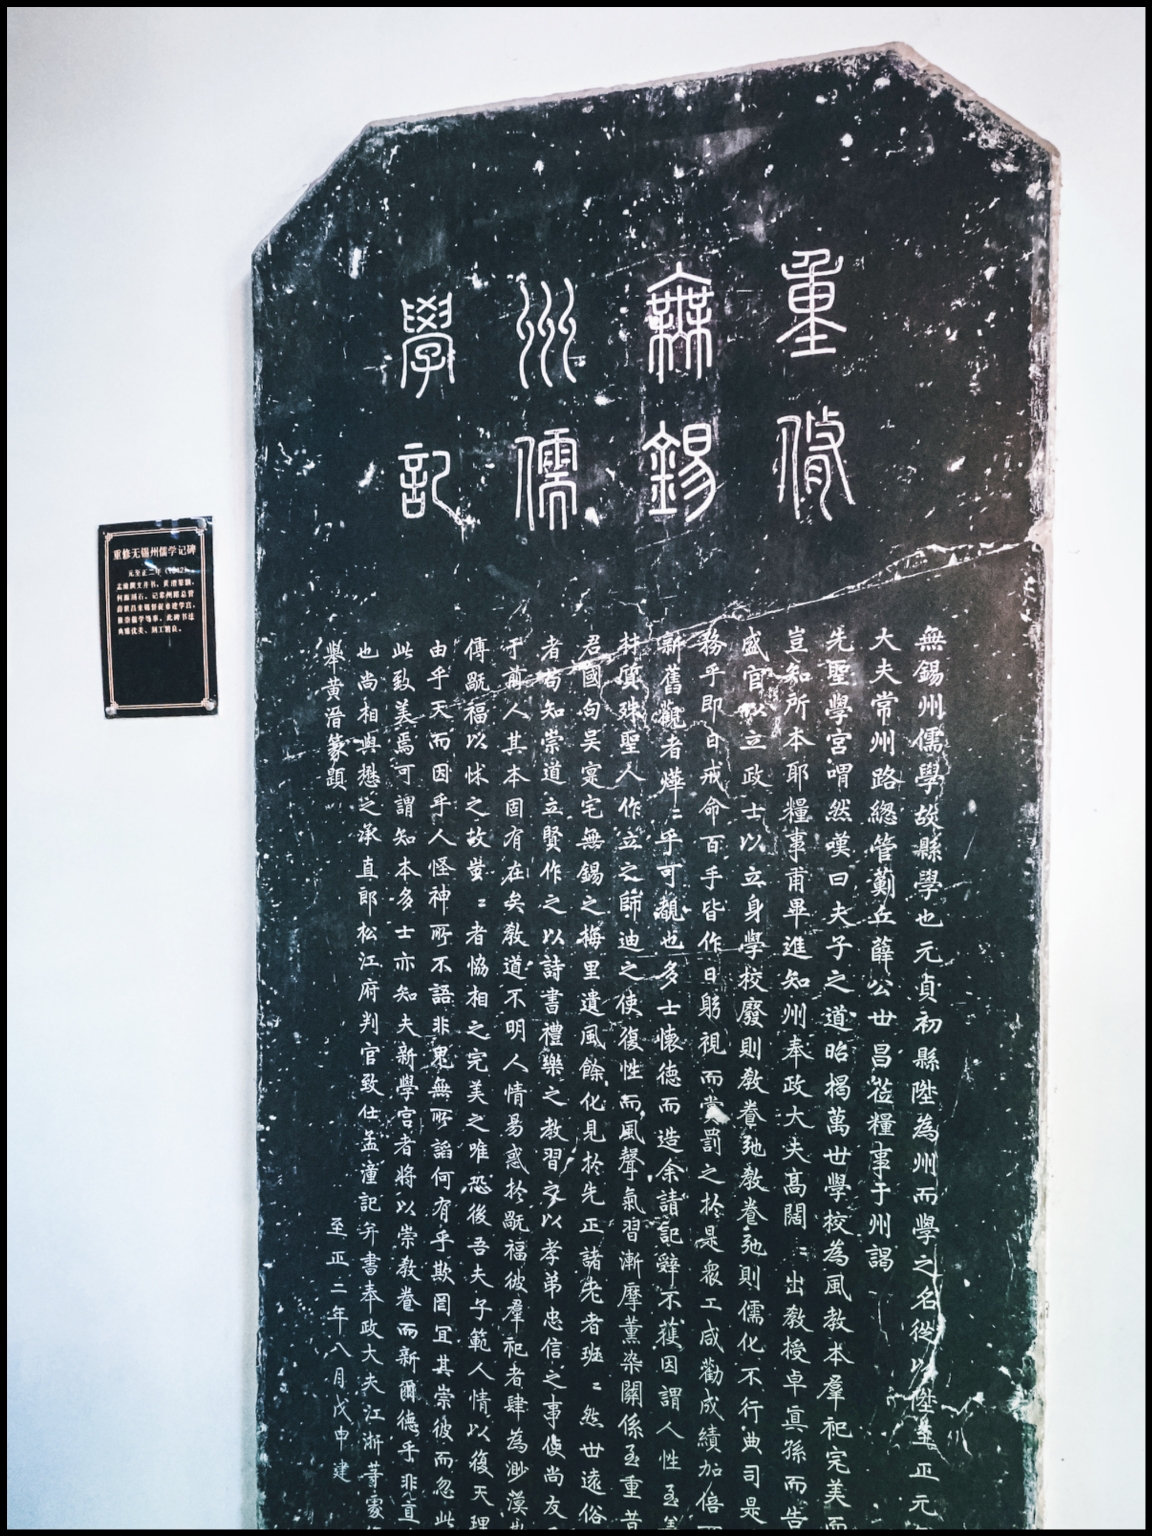 重修
無錫
州儒
學記
無錫州儒學故縣學也元貞初縣陞為州而學之名從以陞至正元
大夫常州路總管薊丘薛公世昌蒞糧事于州謁
先聖學宮喟然嘆曰夫子之道昭揭萬世學校為風教本羣祀完美而
豈知所本耶糧事甫畢進知州奉政大夫高闊〻出教授卓真孫而告
盛官以立政士以立身學校廢則教養弛教養弛則儒化不行典司是
務乎即日戒命百手皆作日躬視而賞罰之於是衆工咸勸成績加倍
新舊觀者燁〻乎可覩也多士懷德而造余請記辭不獲因謂人性至
材質殊聖人作立之師迪之使復性而風聲氣習漸摩薰染關係至重昔
君國句吳寔宅無錫之梅里遺風餘化見於先正諸先者班〻然世遠俗
者苟知崇道立賢作之以詩書禮樂之教習之以孝弟忠信之事使尚友
于前人其本固有在矣教道不明人情易惑於毀福彼羣祀者肆為渺漠
傅毀福以怵之故蚩〻者恊相之完美之唯恐後吾夫子範人情以復天理
由乎天而因乎人怪神所不語非鬼無所謟何有乎欺罔宜其崇彼而忽此
此致美焉可謂知本多士亦知夫新學宮者將以崇教養而新爾德乎非直
也尚相與懋之承真郎松江府判官致仕孟潼記并書奉政大夫江浙等處
舉黃溍篆題 至正二年八月戊申建
重修无锡州儒学记碑
元至正二年（1342），
孟潼撰文并书，黄溍篆额，